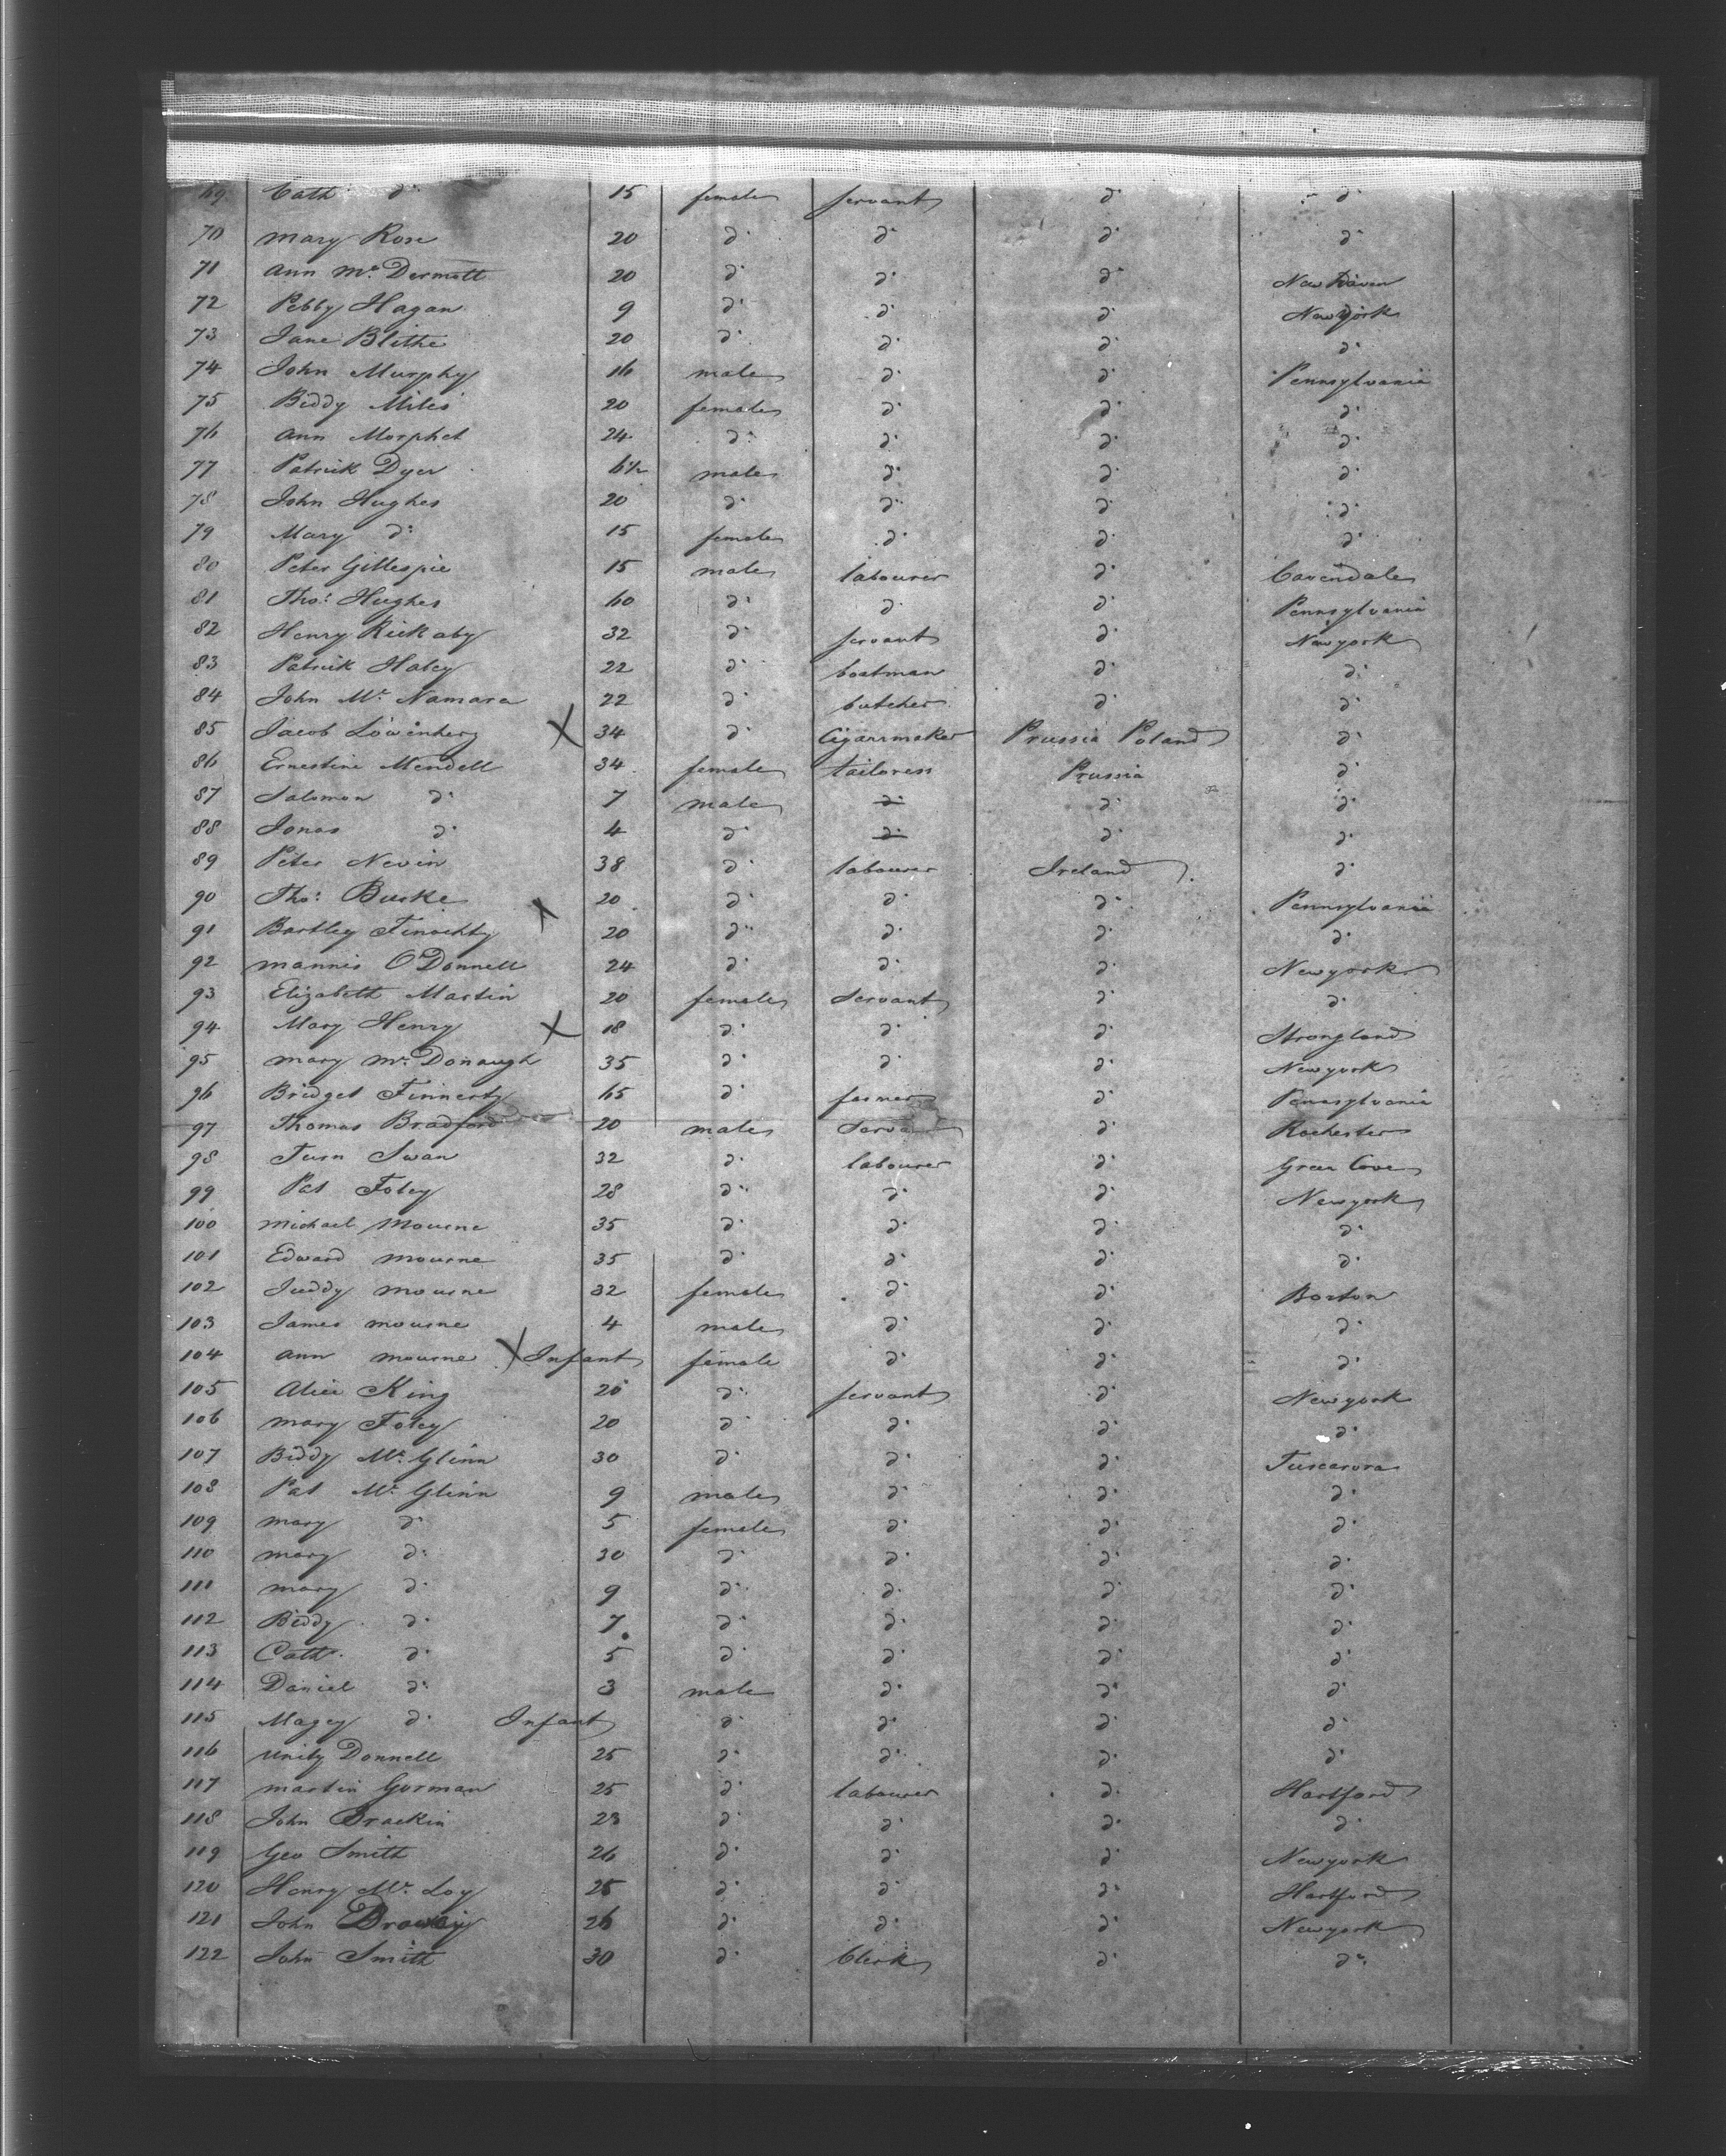 69 Cath do 15 female servant do do
70 Mary Rose 20 do do do do
71 Ann Mc Dermott 20 do do do New Haven
72 Pebby Hagan 9 do do do New york
73 Jane Blithe 20 do do do do
74 John Murphy 16 male do do Pennsylvania
75 Biddy Miles 20 female do do do
76 Ann Morphet 24 do do do do
77 Patrick Dyer 6½ male do do do
78 John Hughes 20 do do do do
79 Mary do 15 female do do do
80 Peter Gillespie 15 male labourer do Cavendale
81 Thos Hughes 60 do do do Pennsylvania
82 Henry Rickaby 32 do servant do Newyork
83 Patrick Haley 22 do boatman do do
84 John Mc Namara 22 do butcher do do
85 Jacob Löwenberg X 34 do Cigarrmaker Prussia Poland do
86 Ernestine Mendell 34 female tailoress Prussia do
87 Salomon do 7 male do do do
88 Jonas do 4 do do do do
89 Peter Nevin 38 do labourer Ireland do
90 Thos Burke X 20 do do do Pennsylvania
91 Bartley Finoihty 20 do do do do
92 Mannis O'Donnell 24 do do do Newyork
93 Elizabeth Martin 20 female Servant do do
94 Mary Henry X 18 do do do Strongland
95 Mary Mc Donaugh 35 do do do Newyork
96 Bridget Finnerty 65 do farmer do Pennsylvania
97 Thomas Bradford 20 male do Rochester
98 Turn Swan 32 do labourer do Green Cove
99 Pat Foley 28 do do do Newyork
100 Michael Mourne 35 do do do do
101 Edward Mourne 35 do do do do
102 Juddy Mourne 32 female do do Boston
103 James Mourne 4 male do do do
104 Ann Mourne X Infant female do do do
105 Alice King 20 do servant do Newyork
106 Mary Foley 20 do do do do
107 Biddy Mc Glinn 30 do do do Tuscarora
108 Pat Mc Glinn 9 male do do do
109 Mary do 5 female do do do
110 Mary do 30 do do do do
111 Mary do 9 do do do do
112 Biddy do 7 do do do do
113 Cath do 5 do do do do
114 Daniel do 3 male do do do
115 Magey do Infant do do do do
116 Unity Donnell 25 do do do do
117 Martin Gorman 25 do labourer do Hartford
118 John Brackin 23 do do do do
119 Geo Smith 26 do do do Newyork
120 Henry Mc Loy 25 do do do Hartford
121 John 26 do do do Newyork
122 John Smith 30 do Clerk do do